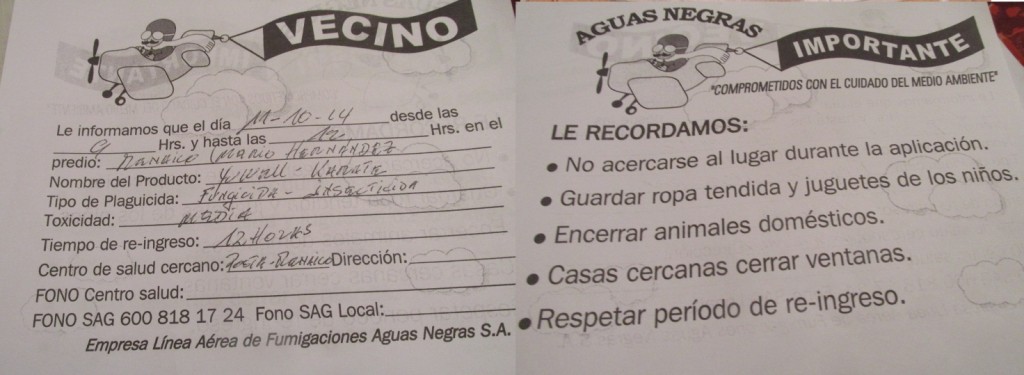 VECINO
Le informamos que el día 11-10-14 desde las
9 Hrs. y hasta las 12 Hrs. en el
predio: Mario HERNANDEZ
Nombre del Producto: - KARATE
Tipo de Plaguicida: FUNGICIDA - INSECTICIDA
Toxicidad: MEDIA
Tiempo de re-ingreso: 12 HORAS
Centro de salud cercano: Dirección:
FONO Centro salud:
FONO SAG 600 818 17 24 Fono SAG Local:
Empresa Línea Aérea de Fumigaciones Aguas Negras S.A.
AGUAS NEGRAS
IMPORTANTE
"COMPROMETIDOS CON EL CUIDADO DEL MEDIO AMBIENTE"
LE RECORDAMOS:
• No acercarse al lugar durante la aplicación.
• Guardar ropa tendida y juguetes de los niños.
• Encerrar animales domésticos.
• Casas cercanas cerrar ventanas.
• Respetar período de re-ingreso.